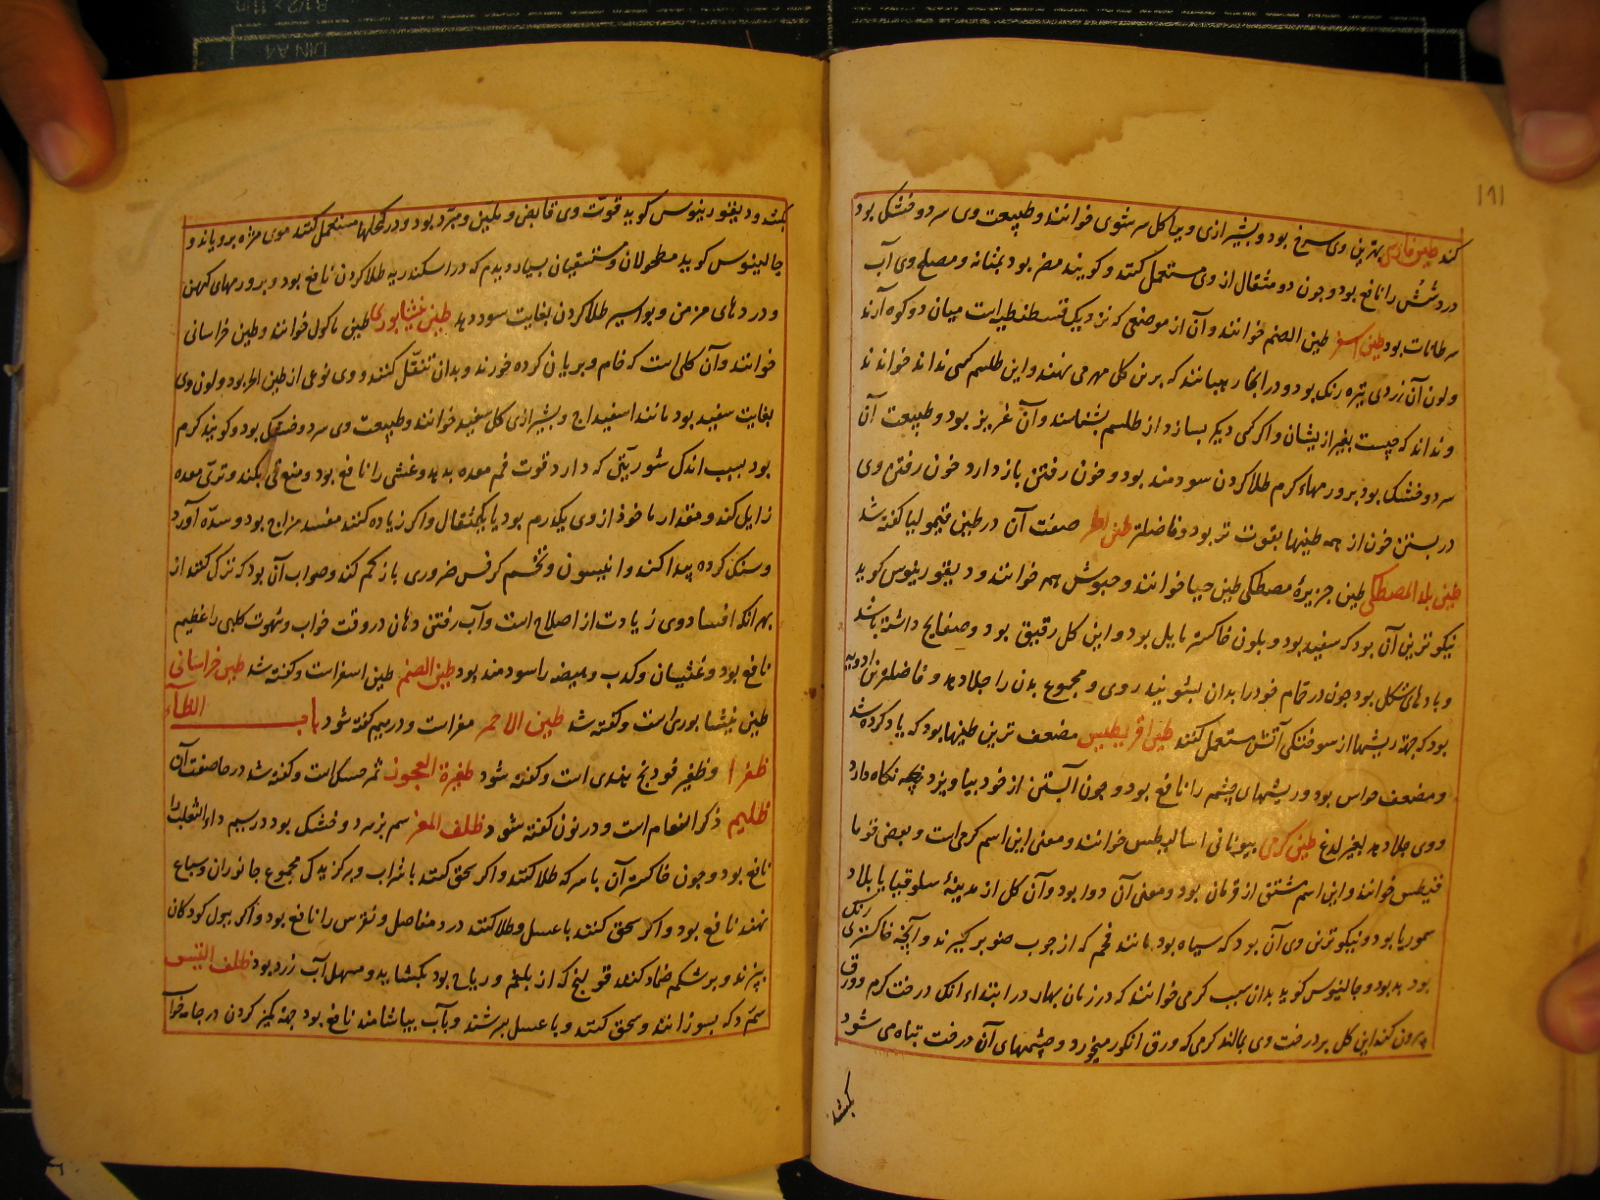 ۱۸۱
کند طین فارسی بهترین وی سرخ بود و بشیرازی ویرا کل سرشوی خوانند و طبیعت وی سرد و خشک بود
در دشش را نافع بود و چون دو مثقال از وی مستعمل کنند و کویند مضر بود بمثانه و مصلح وی آب
سرطانات بود طین اصفر طین الصنم خوانند و آن از موضعی که نزدیک قسطنطنیه است میان دو کوه آرند
ولون آن زردی تیره رنک بود و در انجا رهبانانند که برین کل مهر می نهند و این طلسم کسی نداند خواند
و نداند که چیست بغیر ازیشان و اکر کسی دیکر بسازد از طلسم بشناسند و آن عزیز بود و طبیعت آن
سرد و خشک بود بر ورمهاء کرم طلا کردن سودمند بود و خون رفتن باز دارد خون رفتن وی
در بستن خون از همه طینها بقوت تر بود و فاضلتر صفت آن در طین قیمولیا کفته شد
طین بلد المصطکی طین جزیرهٔ مصطکی طین حیا خوانند و حیوش هم خوانند و دیقوریدوس کوید
نیکوترین آن بود که سفید بود و بلون خاکستر مایل بود و این کل رقیق بود و صفایح داشته باشد
و بادهای شکل بود چون در حمام خود را بدان بشویند روی و مجموع بدن را جلا دهد و فاضلترین ادویه
بود که جهة ریشها از سوختکی آتش مستعمل کنند طین اقریطیس مضعف ترین طینها بود که یاد کرده شد
و مضعف حواس بود و ریشهای چشم را نافع بود و چون آبستن از خود بیاویزد بچه نکاه دارد
و وی جلا دهد بغیر لدغ طین کرمی بیونانی اسالیطس خوانند و معنی این اسم کرمی است و بعضی قوما
قنیطس خوانند و این اسم مشتق از قرمان بود و معنی آن دوا بود و آن کل از مدینهٔ سلوقیا یا بلاد
سوریا بود و نیکوترین وی آن بود که سیاه بود مانند فحم که از چوب صنوبر کیرند و آنچه خاکستری رنک
بود بد بود و جالینوس کوید بدان سبب کرمی خوانند که در زمان بهار در ابتداء انک درخت کرم ورق
بیرون کند این کل بر درخت وی بمالند کرمی که ورق انکور میخورد و چشمهای آن درخت تباه می شود
بکشد
بکشد و دیقوریدوس کوید قوت وی قابض و ملین و مبرد بود و در کحلها مستعمل کنند موی مژه برویاند و
جالینوس کوید مطحولان و مستسقیان بسیار دیدم که در اسکندریه طلا کردن نافع بود و بر ورمهای کهن
و دردهای مزمن و بواسیر طلا کردن بغایت سود دهد طین نیشابوری طین ماکول خوانند و طین خراسانی
خوانند و آن کلی است که خام و بریان کرده خورند و بدان تنقل کنند و وی نوعی از طین الحر بود و لون وی
بغایت سفید بود مانند اسفیداج و بشیرازی کل سفید خوانند و طبیعت وی سرد و خشک بود و کویند کرم
بود بسبب اندک شوریتی که دارد قوت فم معده بدهد و غشی را نافع بود و منع قی بکند و تری معده
زایل کند و مقدار ماخوذ از وی یکدرم بود یا یکمثقال و اکر زیاده کنند مفسد مزاج بود و سده آورد
و سنک کرده پیدا کند و انیسون و تخم کرفس ضروری باز کم کند و صواب آن بود که ترک کنند از
بهر انک افساد وی زیادت از اصلاح است و آب رفتن دهان در وقت خواب و شهوت کلبی را عظیم
نافع بود و غثیان و کرب و هیضه را سودمند بود طین الصنم طین اصفر است و کفته شد طین خراسانی
طین نیشابوری است و کفته شد طین الاحمر مغراست و در میم کفته شود باب الظاء
ظفرا و ظفیر فودنج هندی است و کفته شود ظفرة العجوز ثمر حسک است و کفته شد در حا صفت آن
ظلیم ذکر النعام است و در نون کفته شود ظلف المعز سم بز سرد و خشک بود در سیم داء الثعلب را
نافع بود و چون خاکستر آن با سرکه طلا کنند و اکر سحق کنند با شراب و بر کزیدکی مجموع جانوران و سباع
نهند نافع بود و اکر سحق کنند با عسل و طلا کنند درد مفاصل و نقرس را نافع بود و اکر ببول کودکان
بپزند و بر شکم ضماد کنند قولنج که از بلغم و ریاح بود بکشاید و مسهل آب زرد بود ظلف التیس
سم که بسوزانند و سحق کنند و با عسل بسرشند و بآب بیاشامند نافع بود جهة کمیز کردن در جامه خواب